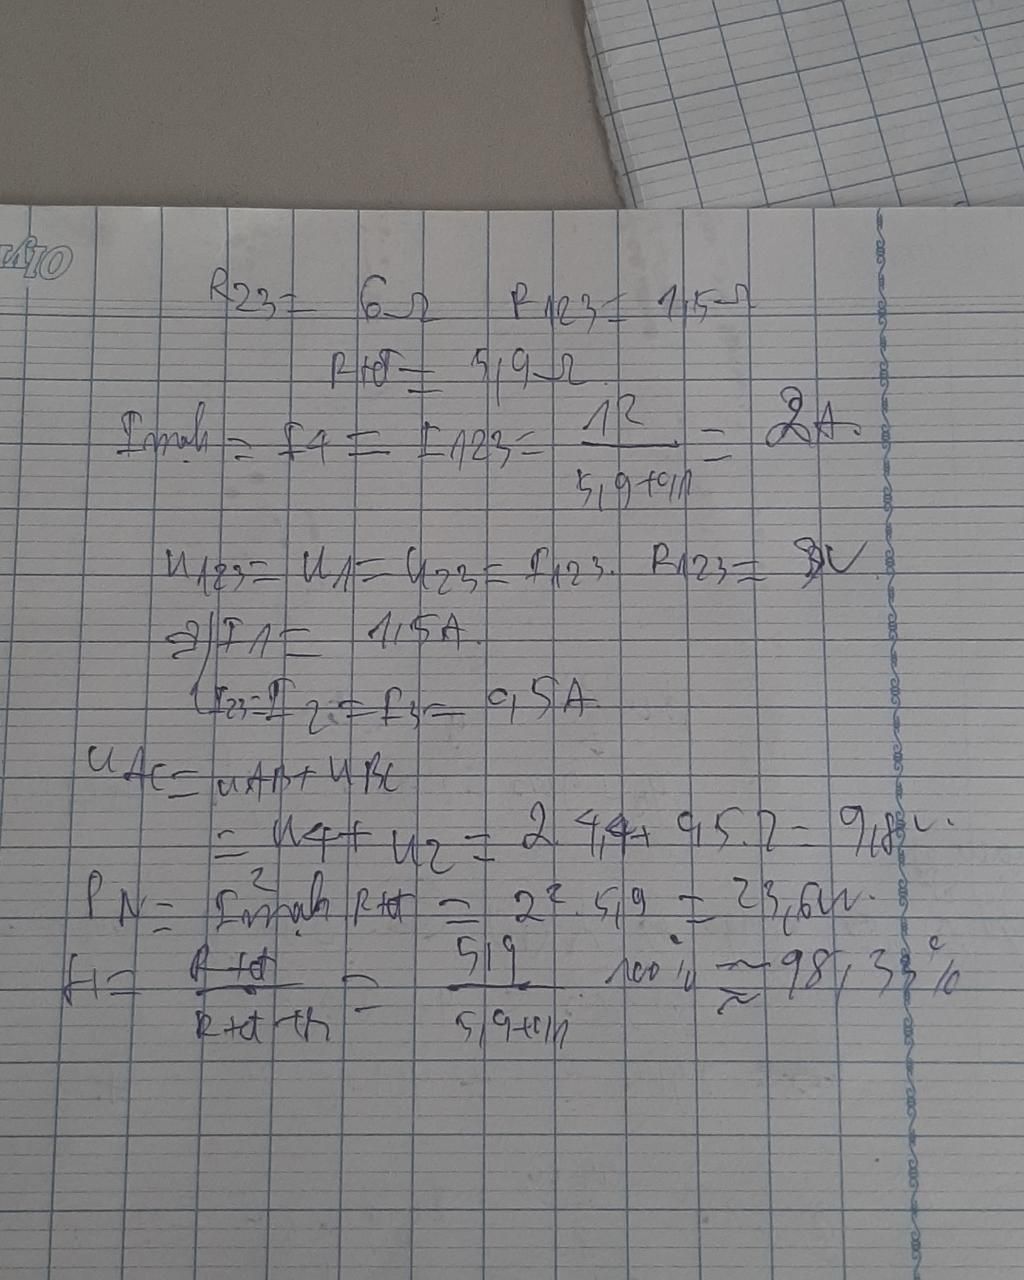 R23 = 6Ω R123 = 1,5Ω
Rtđ = 5,9Ω
Imạh = I4 = I123 = 12 / 5,9+0,1 = 2A.
U123 = U1 = U23 = I123. R123 = 3V
=> I1 = 1,5A.
I23=I2 = I3 = 0,5A
UAC = UAB + UBC
= U4 + U2 = 2.4,4 + 0,5.2 = 9,8V.
PN = I²mạh Rtđ = 2².5,9 = 23,6W.
H = Rtđ / Rtđ + r = 5,9 / 5,9+0,1 100% ≈ 98,33%